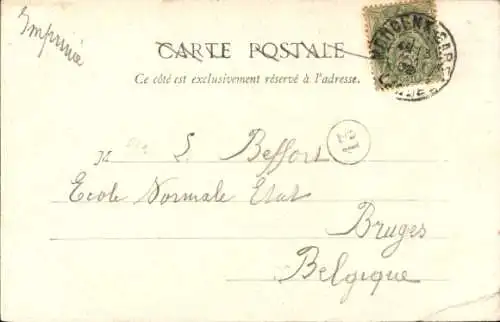 Imprimé
CARTE POSTALE
Ce côté est exclusivement réservé à l'adresse.
S. Beffort
15
Ecole Normale Etat
Bruges
Belgique